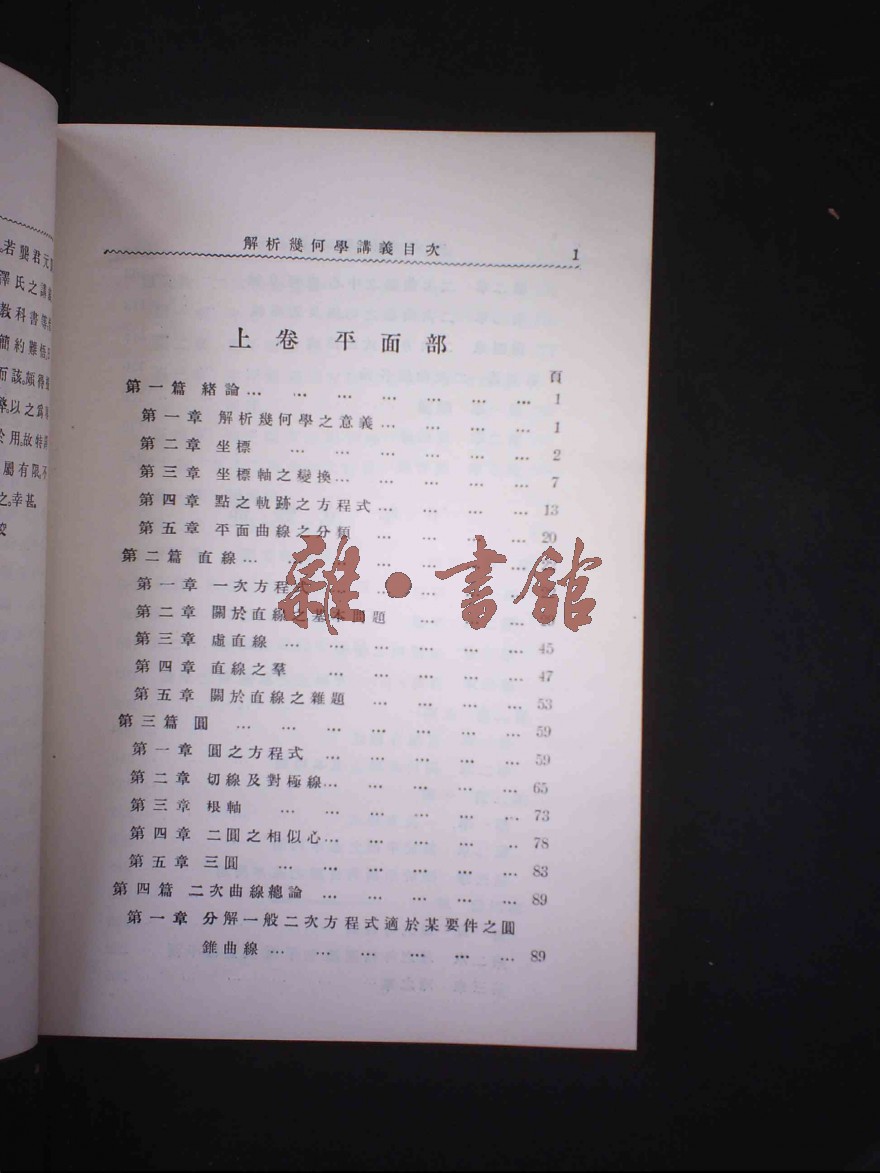 解析幾何學講義目次 1
上卷 平面部
頁
第一篇 緒論 … … … … … … … 1
第一章 解析幾何學之意義 … … … … 1
第二章 坐標 … … … … … 2
第三章 坐標軸之變換 … … … … … 7
第四章 點之軌跡之方程式 … … … … 13
第五章 平面曲線之分類 … … … … 20
第二篇 直線 … … … … … …
第一章 一次方程式 … … … …
第二章 關於直線之基本問題 … … …
第三章 虛直線 … … … … … … 45
第四章 直線之羣 … … … … … 47
第五章 關於直線之雜題 … … … … 53
第三篇 圓 … … … … … … … 59
第一章 圓之方程式 … … … … … 59
第二章 切線及對極線 … … … … … 65
第三章 根軸 … … … … … … 73
第四章 二圓之相似心 … … … … … 78
第五章 三圓 … … … … … … 83
第四篇 二次曲線總論 … … … … … 89
第一章 分解一般二次方程式適於某要件之圓
錐曲線 … … … … … … 89
雜·書館
若龔君元
澤氏之講
教科書等
簡約難悟
而該。頗得
以之爲
用。故特
屬有限。不
之。幸甚。